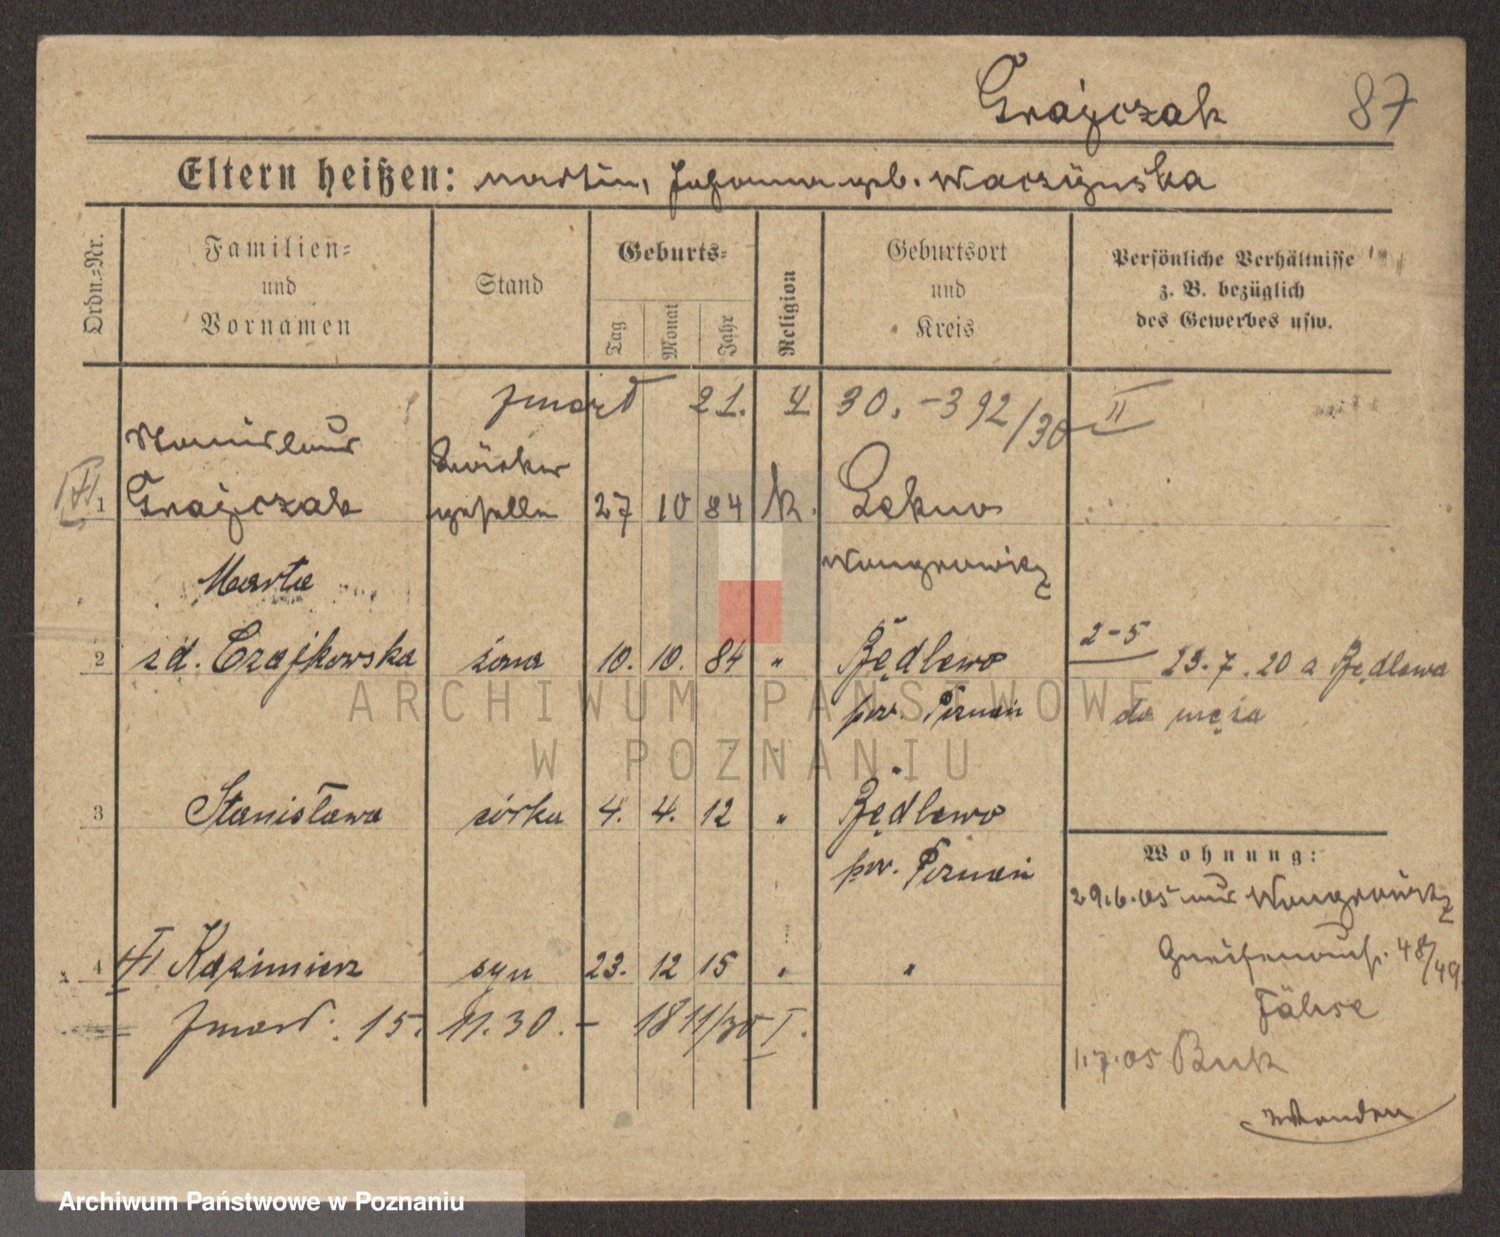 Grajczak 87
Eltern heißen: Martin, Johanna geb. Waczyńska
Ordn.-Nr.
Familien-
und
Vornamen
Stand
Geburts-
Tag
Monat
Jahr
Religion
Geburtsort
und
Kreis
Persönliche Verhältnisse
z. B. bezüglich
des Gewerbes usw.
zmarł 21. 4 30. - 392/30 II
Stanislaus
1 Grajczak
Bäcker
geselle
27 10 84 k. Lekno
Wongrowitz
Marta
2 z d. Czajkowska żona 10. 10. 84 " Będlewo
pow. Poznań
2-5
23. 7. 20 a Będlewa
do męża
3 Stanisława córka 4. 4. 12 " Będlewo
pow. Poznań
4 Kazimierz syn 23. 12 15 " "
zmarł. 15. 11. 30. - 1811/30 I.
Wohnung:
29.6.05 aus Wongrowitz
48/49
Fähse
1.7.05 Buk
ARCHIWUM PAŃSTWOWE
W POZNANIU
Archiwum Państwowe w Poznaniu